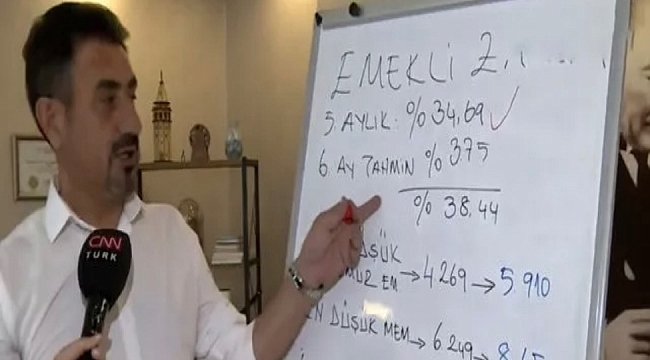 EMEKLİ Z
5 AYLIK: %34,69
6. AY TAHMİN %3.75
%38.44
4.269 → 5.910
DÜŞÜK MEM → 6249 →
CNN
TÜRK